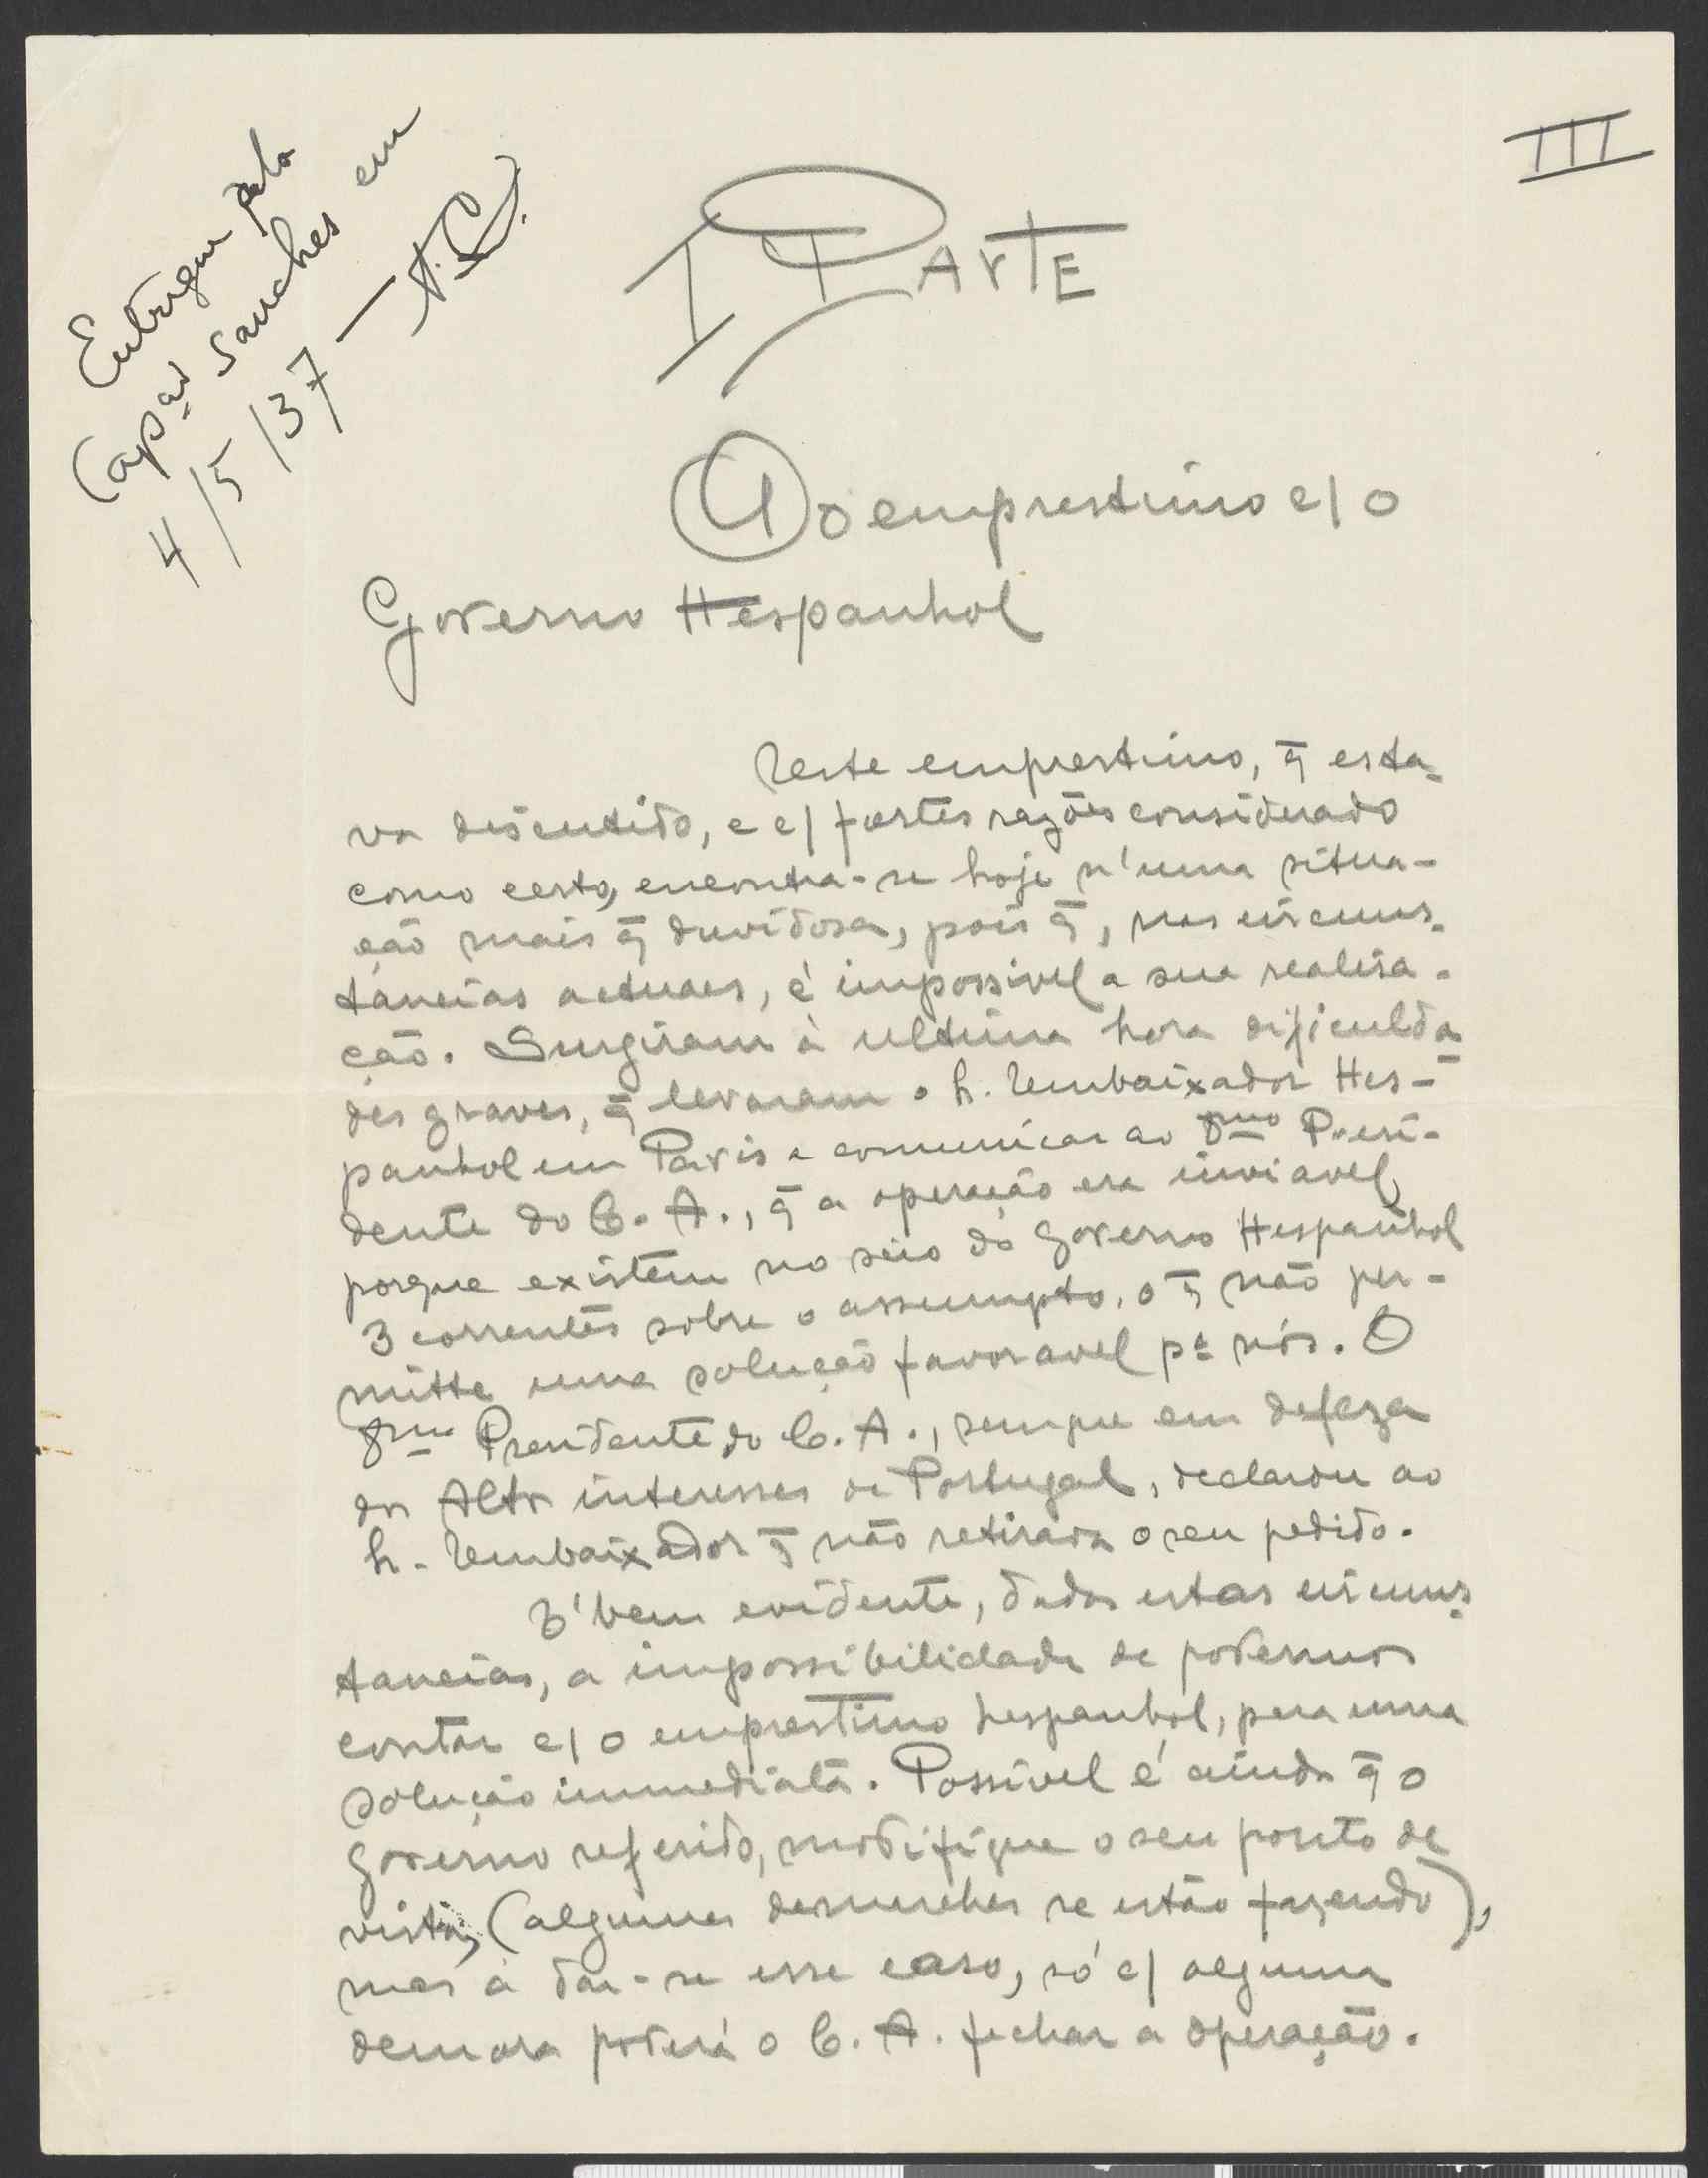 III
Entregue pelo
Capão Sanches em
4/5/37 —
I PARTE
1) O emprestimo c/ o
Governo Hespanhol
Este emprestimo, q̄ esta-
va discutido, e c/ fortes razões considerado
como certo, encontra-se hoje n'uma situa-
ção mais q̄ duvidosa, pois q̄, nas circums-
tancias actuaes, é impossivel a sua realisa-
ção. Surgiram à ultima hora dificulda-
des graves, q̄ levaram o S. Embaixador Hes-
panhol em Paris a comunicar ao Exmo Presi-
dente do C. A., q̄ a operação era inviavel,
porque existem no seio do Governo Hespanhol
3 correntes sobre o assumpto, o q̄ não per-
mitte uma solução favoravel pª nós. O
Exmo Presidente do C. A., sempre em defeza
dos Altos interesses de Portugal, declarou ao
S. Embaixador q̄ não retirava o seu pedido.
E' bem evidente, dadas estas circums-
tancias, a impossibilidade de podermos
contar c/ o emprestimo hespanhol, para uma
solução immediata. Possivel é ainda q̄ o
Governo referido, modifique o seu ponto de
vista, (algumas demarches se estão fazendo),
mas a dar-se esse caso, só c/ alguma
demora poderá o C. A. fechar a operação.